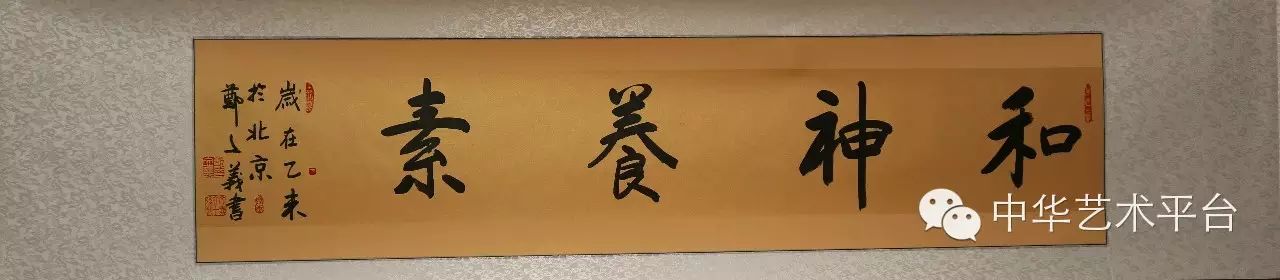 和神養素
歲在乙未
於北京
鄭文義書
中华艺术平台